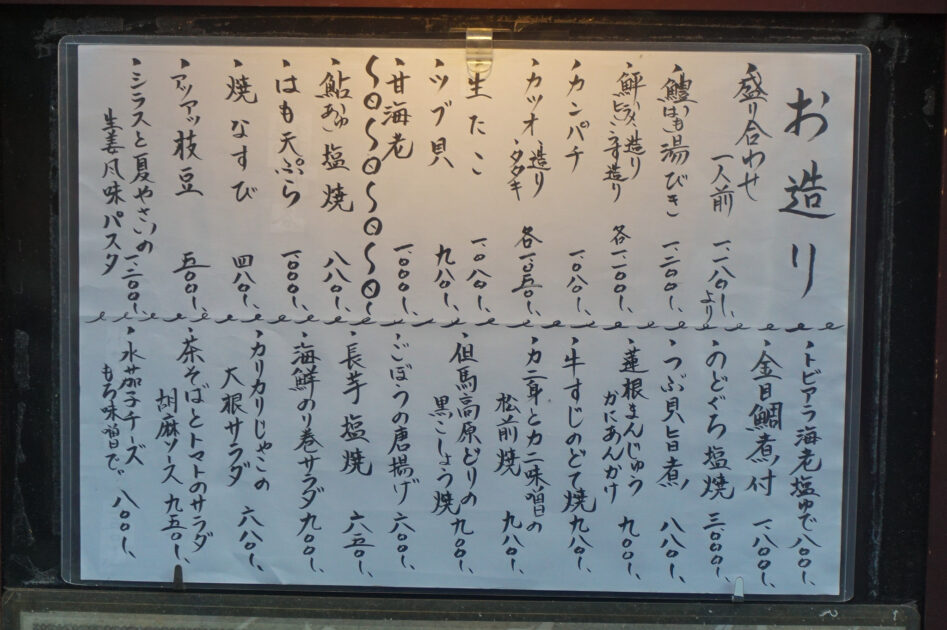 お造り
・盛り合わせ
一人前 一、一八〇〜、より
・鱧はも湯びき 一、二〇〇〜、
・鮃ヒラメ造り
旨いこうす造り 各一、一〇〇〜、
・カンパチ 一、〇八〇〜、
・カツオ 造り
タタキ 各一、〇五〇〜、
・生たこ 一、〇八〇〜、
・ツブ貝 九八〇〜、
・甘海老 一、〇〇〇〜、
・鮎あゆ塩焼 八八〇〜、
・はも天ぷら 一、〇〇〇〜、
・焼なすび 四八〇〜、
・アツアツ枝豆 五〇〇〜、
・シラスと夏やさいの
生姜風味パスタ 一、二〇〇〜、
・トビアラ海老塩ゆで 八〇〇〜、
・金目鯛煮付 一、八〇〇〜、
・のどぐろ塩焼 三、〇〇〇〜、
・つぶ貝旨煮 八八〇〜、
・蓮根まんじゅう
かにあんかけ 九〇〇〜、
・牛すじのどて焼 九八〇〜、
・カニ身とカニ味噌の
松前焼 九八〇〜、
・但馬高原どりの
黒こしょう焼 九〇〇〜、
・ごぼうの唐揚げ 六〇〇〜、
・長芋塩焼 六五〇〜、
・海鮮のり巻サラダ 九〇〇〜、
・カリカリじゃこの
大根サラダ 六八〇〜、
・茶そばとトマトのサラダ
胡麻ソース 九五〇〜、
・水茄子チーズ
もろ味噌で 八〇〇〜、